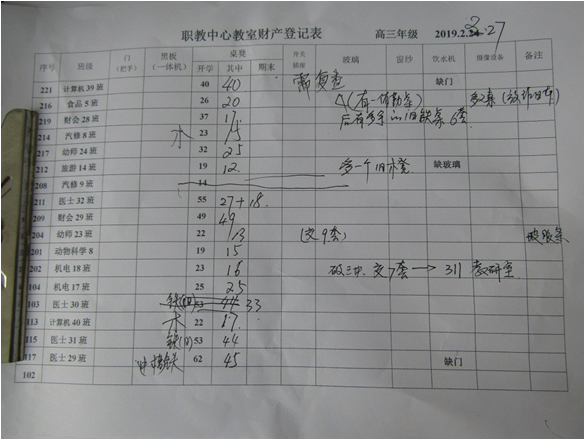 职教中心教室财产登记表 高三年级 2019.2.27
序号 班级 门(把手) 黑板(一体机) 桌凳 开关插座 玻璃 窗纱 饮水机 摄像设备 备注
开学 其中 期末
221 计算机 39 班 40 40 需复查 缺门
216 食品 5 班 26 20
219 财会 28 班 37 17
214 汽修 8 班 木 23 15
217 幼师 24 班 32 25
212 旅游 14 班 19 12 多一个旧木凳 缺玻璃
208 汽修 9 班 14
211 医士 32 班 55 27+18
209 财会 29 班 49 49
204 幼师 23 班 22 13 (交9套)
201 动物科学 8 19 15
202 机电 18 班 23 16 交7套→311 教研室
104 机电 17 班 25 25
103 医士 30 班 53 44 33
113 计算机 40 班 木 22 17
115 医士 31 班 53 44
117 医士 29 班 62 45 缺门
102